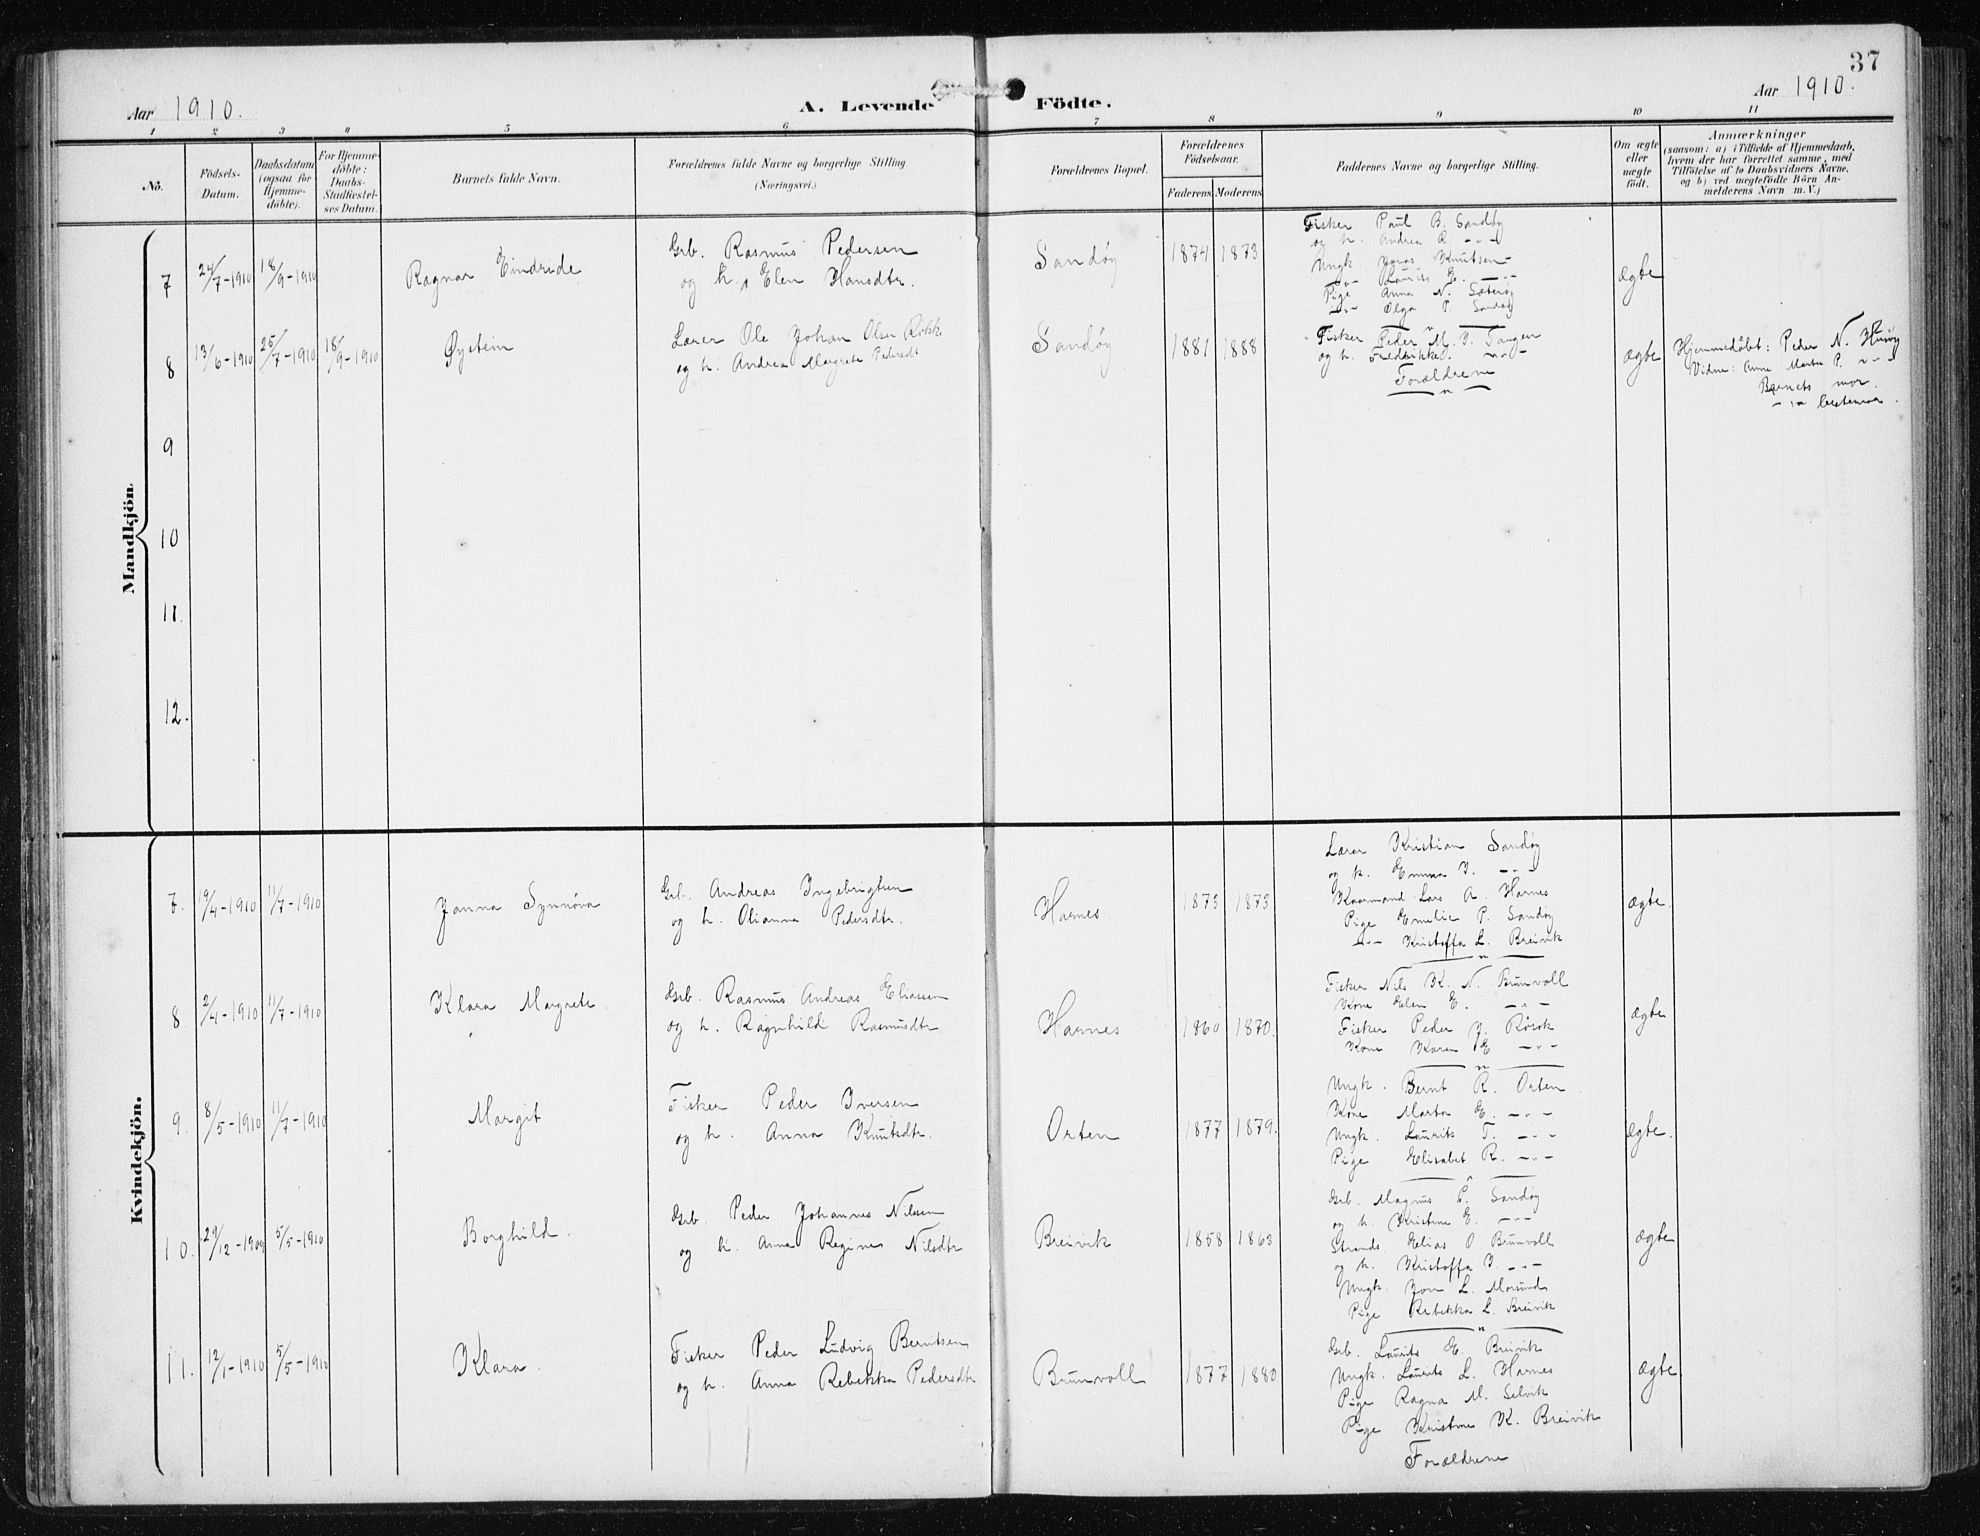 37
Aar 1910.
A. Levende Födte.
Aar 1910.
1 2 3 4 5 6 7 8 9 10 11
No.
Födsels-Datum.
Daabsdatum (ogsaa för Hjemme-döbte).
For Hjemme-döbte: Daabs-Stadfæstel-ses Datum.
Barnets fulde Navn.
Forældrenes fulde Navne og borgerlige Stilling. (Næringsvei.)
Forældrenes Bopæl.
Forældrenes Födselsaar.
Faderens Moderens
Faddernes Navne og borgerlige Stilling.
Om ægte eller uægte födt.
Anmærkninger
(saasom: a) i Tilfælde af Hjemmedaab,
hvem der har forrettet samme, med
Tilföielse af to Daabsvidners Navne,
og b) ved uegtefödte Börn An-
melderens Navn m. V.)
Mandkjön.
7 24/7-1910 18/9-1910 Ragnar Eindride
Grb. Rasmus Pedersen
og h. Elen Hansdtr.
Sandøy 1874 1873
Fisker Paul B. Sandøy
og h. Andrea R -"-
Ungk. Jonas Knutsen -
-"- Laurits E. -"-
Pige Anna N. Sæterøy
-"- Olga P. Sandøy
ægte
8 13/6-1910 25/7-1910 18/9-1910 Øystein
Lærer Ole Johan Olsen Rokk
og h. Andrea Margrete Pedersdt
Sandøy 1881 1888
Fisker Peder M. J. Tangen
og h. Fredrikke. -"-
Forældrene
ægte
Hjemmedöbt: Peder N. Husøy
Vidne: Anne Marta P. -"-
Barnets mor.
-"- bestemor.
9
10
11.
12.
Kvindekjön.
7. 19/4-1910 11/7-1910 Janna Synnöva
Grb. Andreas Ingebrigtsen
og h. Olianna Pedersdtr.
Harnes. 1873 1873
Lærer Kristian Sandøy
og h. Emma J. -"-
Kaarmand Lars A. Harnes
Pige Emelie P. Sandøy
-"- Kristoffa L. Breivik
ægte.
8 2/4-1910 11/7-1910 Klara Margrete.
Grb. Rasmus Andreas Eliassen
og h. Ragnhild Rasmusdtr
Harnes 1860 1870.
Fisker Nils K. N. Brunvoll
Kone Elen E. -"-
Fisker Peder J. Rørvik
Kone Karen E -"-
ægte
9. 8/5-1910 11/7-1910 Margit
Fisker Peder Iversen
og h. Anna Knutsdtr.
Orten 1877 1879.
Ungk. Bernt R. Orten
Kone Marta E. -"-
Ungk. Laurits T. -"-
Pige Elisabet R. -"-
ægte.
10. 29/12-1909 5/5-1910 Borghild.
Grb. Peder Johannes Nilsen
og h. Anna Regine Nilsdtr
Breivik 1858 1863
Grb. Magnus P. Sandøy
og h. Kristine E. -"-
Strands. Elias O Brunvoll
og h. Kristoffa J. -"-
Ungk. Jon L. Morsund
Pige Rebekka L. Breivik
ægte
11. 12/1-1910 5/5-1910 Klara.
Fisker Peder Ludvig Berntsen
og h. Anna Rebekka Pedersdtr
Brunvoll 1877 1880
Grb. Laurits E. Breivik
Ungk. Laurits L. Harnes
Pige Ragna M. Selvik
Pige Kristine K. Breivik
Forældrene
ægte